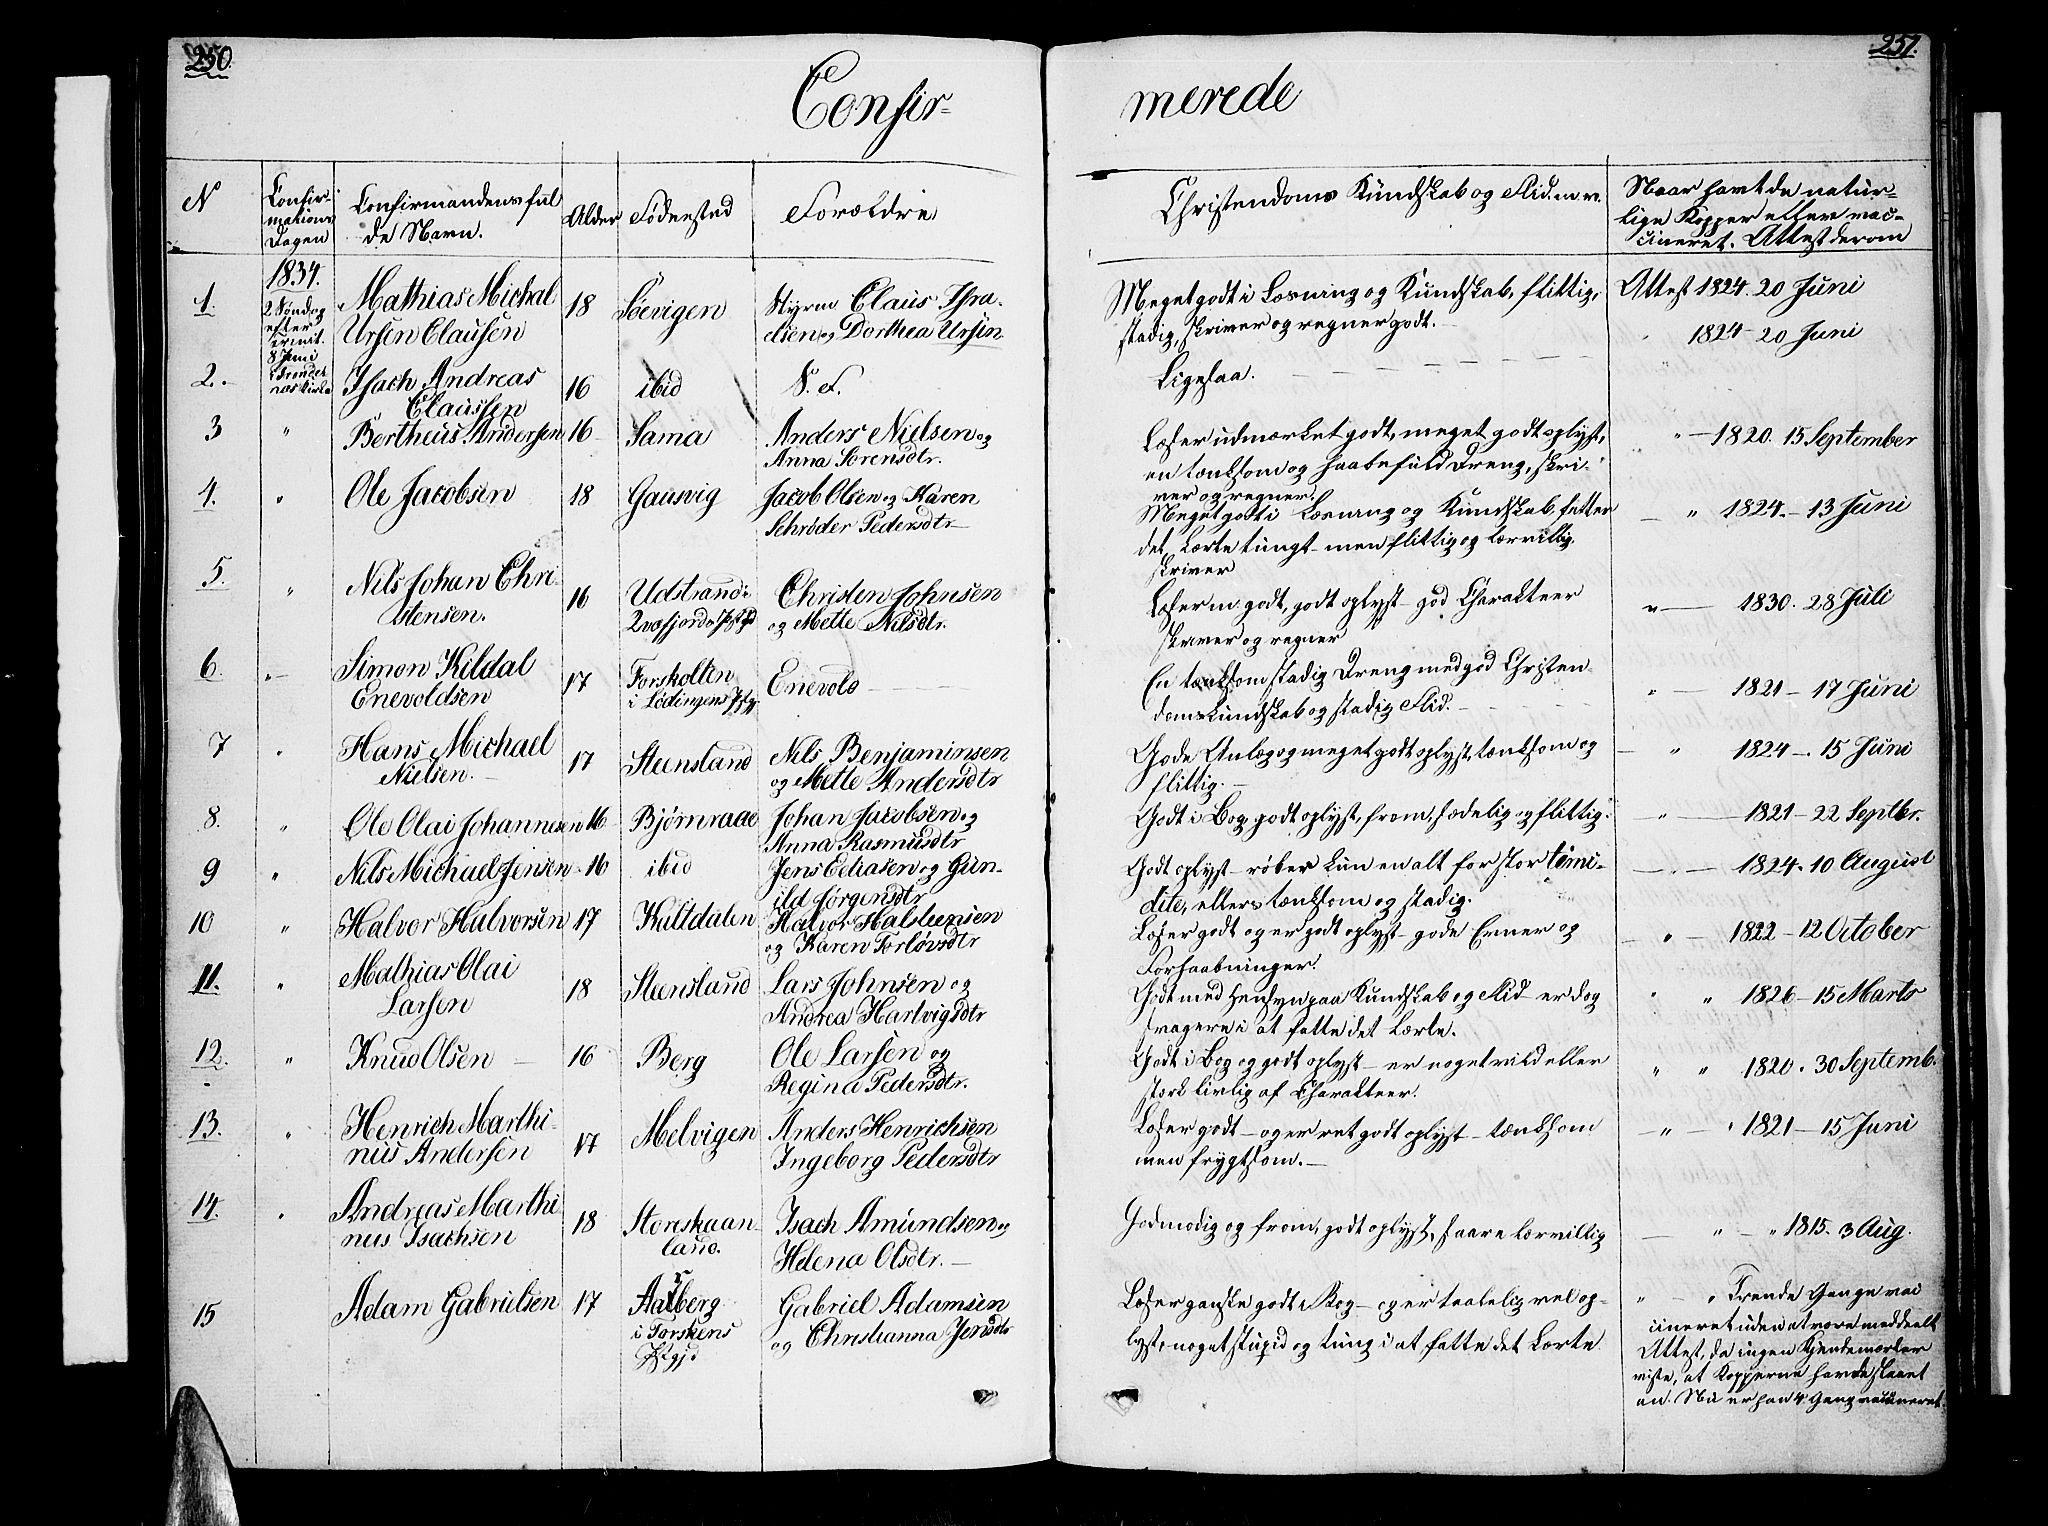 250.
251.
Confir-
merede
N
Confir-
mations
Dagen
Confirmandens ful
de Navn.
Alder
Födested
Forældre
Christendoms Kundskab og Flid. m. v.
Naar havt de natur-
lige Kopper eller vac-
cineret. Attest derom
1834.
2 Søndag
efter
Trinit.
8 Juni
i Tronder
næs Kirke
1.
Mathias Michal
Ursin Clausen
18
Soevigen
Styrm Claus Isra-
elsen og Dorthea Ursin.
Meget godt i Læsning og Kundskab, flittig,
stadig, skriver og regner godt.
Attest 1824. 20 Juni
1824 - 20 Juni
2.
Isach Andreas
Claussen
16
ibid
S. F.
Ligesaa.
3
"
Bertheus Andersen
16
Sama
Anders Nielsen og
Anna Sørensdtr.
Læser udmærket godt, meget godt oplyst,
en tænksom og haabefuld Dreng, skri-
ver og regner.
" - 1820. 15 September
4.
"
Ole Jacobsen
18
Gausvig
Jacob Olsen og Karen
Schrøder Pedersdtr
Meget godt i Læsning og Kundskab, fatter
det Lærte tungt - men flittig og lærvillig,
skriver
- " 1824. - 13 Juni
5.
"
Nils Johan Chri-
stensen.
16
Udstrand i
Qvæfjords Pstgjd
Christen Johnsen
og Mette Nilsdtr.
Læser m. godt, godt oplyst - god Charakteer
skriver og regner
" - 1830. 28 Juli
6.
"
Simon Kildal
Enevoldsen
17
Forskolten
i Lødingens Pstgj.
Enevold
En tænksom stadig Dreng med god Christen
domskundskab og stadig Flid.
" - 1821 - 17 Juni
7
"
Hans Michael
Nielsen.
17
Steensland
Nils Benjaminsen
og Mette Andersdtr
Gode Anlæg og meget godt oplyst, tænksom og
flittig.
- " 1824 - 15 Juni
8.
"
Ole Olai Johannesen
16
Bjørnraae
Johan Jacobsen og
Anna Rasmusdtr
Godt i Bog godt oplyst, from, sædelig og flittig.
- " - 1821 - 22 Septbr.
9
"
Nils Michael Jensen
16
ibid
Jens Eliasen og Gun-
ild Jørgensdtr
Godt oplyst - røber kun en alt for stor timi-
dite, ellers tænksom og stadig.
- " - 1824. 10 August
10
"
Halvor Halvorsen
17
Kuldalen
Halvor Halsteensen
og Karen Torløvsdtr
Læser godt og er godt oplyst - gode Evner og
Forhaabninger.
- " - 1822 - 12 October
11.
"
Mathias Olai
Larsen
18
Steensland
Lars Johnsen og
Andrea Hartvigsdtr
Godt med Hensyn paa Kundskab og Flid - er dog
svagere i at fatte det Lærte.
" " 1826 - 15 Marts
12.
"
Knud Olsen
16
Berg
Ole Larsen og
Regina Pedersdtr.
Godt i Bog og godt oplyst - er noget vild eller
stærk livlig af Charakteer.
" " 1820. 30 Septemb.
13.
"
Henrich Marthi-
nus Andersen
17
Melvigen
Anders Henrichsen
Ingeborg Pedersdtr
Læser godt - og er ret godt oplyst - tænksom
men frygtsom.
- " - " 1821 - 15 Juni
14.
"
Andreas Marthi
nus Isachsen
18
Storskaan-
land.
Isach Amundsen og
Helena Olsdtr.
Godmodig og from, godt oplyst, saare lærvillig
- " - " 1815. 3 Aug.
15
Adam Gabrielsen
17
Aarberg
i Torskens
Pstgjd
Gabriel Adamsen
og Christianna Jensdtr
Læser ganske godt i Bog - og er taalelig vel op-
lyst, noget stupid og tung i at fatte det Lærte
" - " Trende Gange vac
cineret uden at være meddeelt
Attest, da ingen Kjendemærker
viste, at Kopperne havde slaaet
an. Nu er han 4. Gang vaccineret.